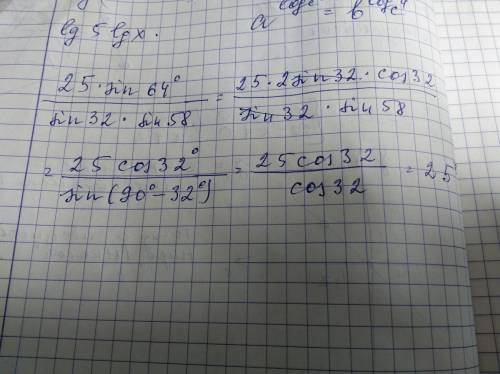 lg 5 lg x.
25·sin 64° / sin 32 · sin 58 = 25·2sin 32 · cos 32 / sin 32 · sin 58
= 25 cos 32° / sin(90°-32°) = 25 cos 32 / cos 32 = 25